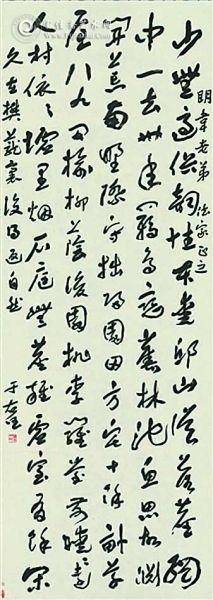 明韋老弟 法家正之
少無適俗韻性本愛邱山誤落塵網
中一去卅年羈鳥戀舊林池魚思故淵
開荒南野際守拙歸園田方宅十餘畝草
屋八九間榆柳蔭後園桃李羅堂前曖々遠
人村依々墟里烟戶庭無塵雜虛室有餘閒
久在樊籠裏復得返自然
于右任